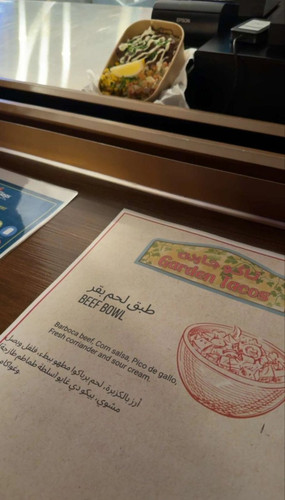 Garden Tacos
طبق لحم بقر
BEEF BOWL
Barboca beef, Corn salsa, Pico de gallo,
Fresh corriander and sour cream.
أرز بالكزبرة، لحم برباكوا مطهو ببطء، فلفل وبصل
مشوي، بيكو دي غايو (سلطة طماطم طازجة